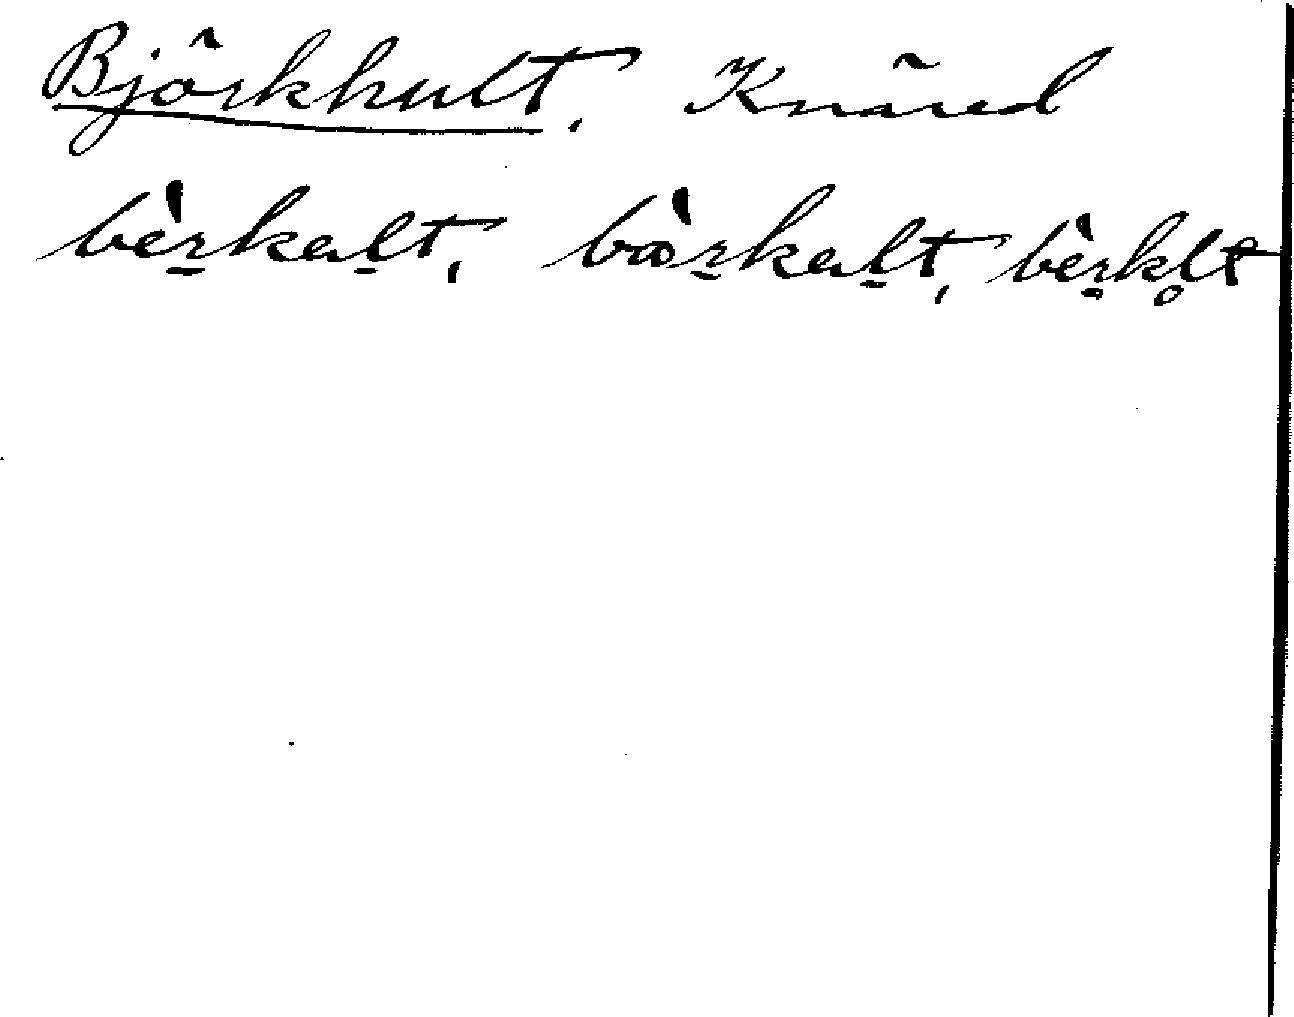 Björkhult, Knäred
bèr̠kal̠t, bòr̠kal̠t, bèr̠kl̥t